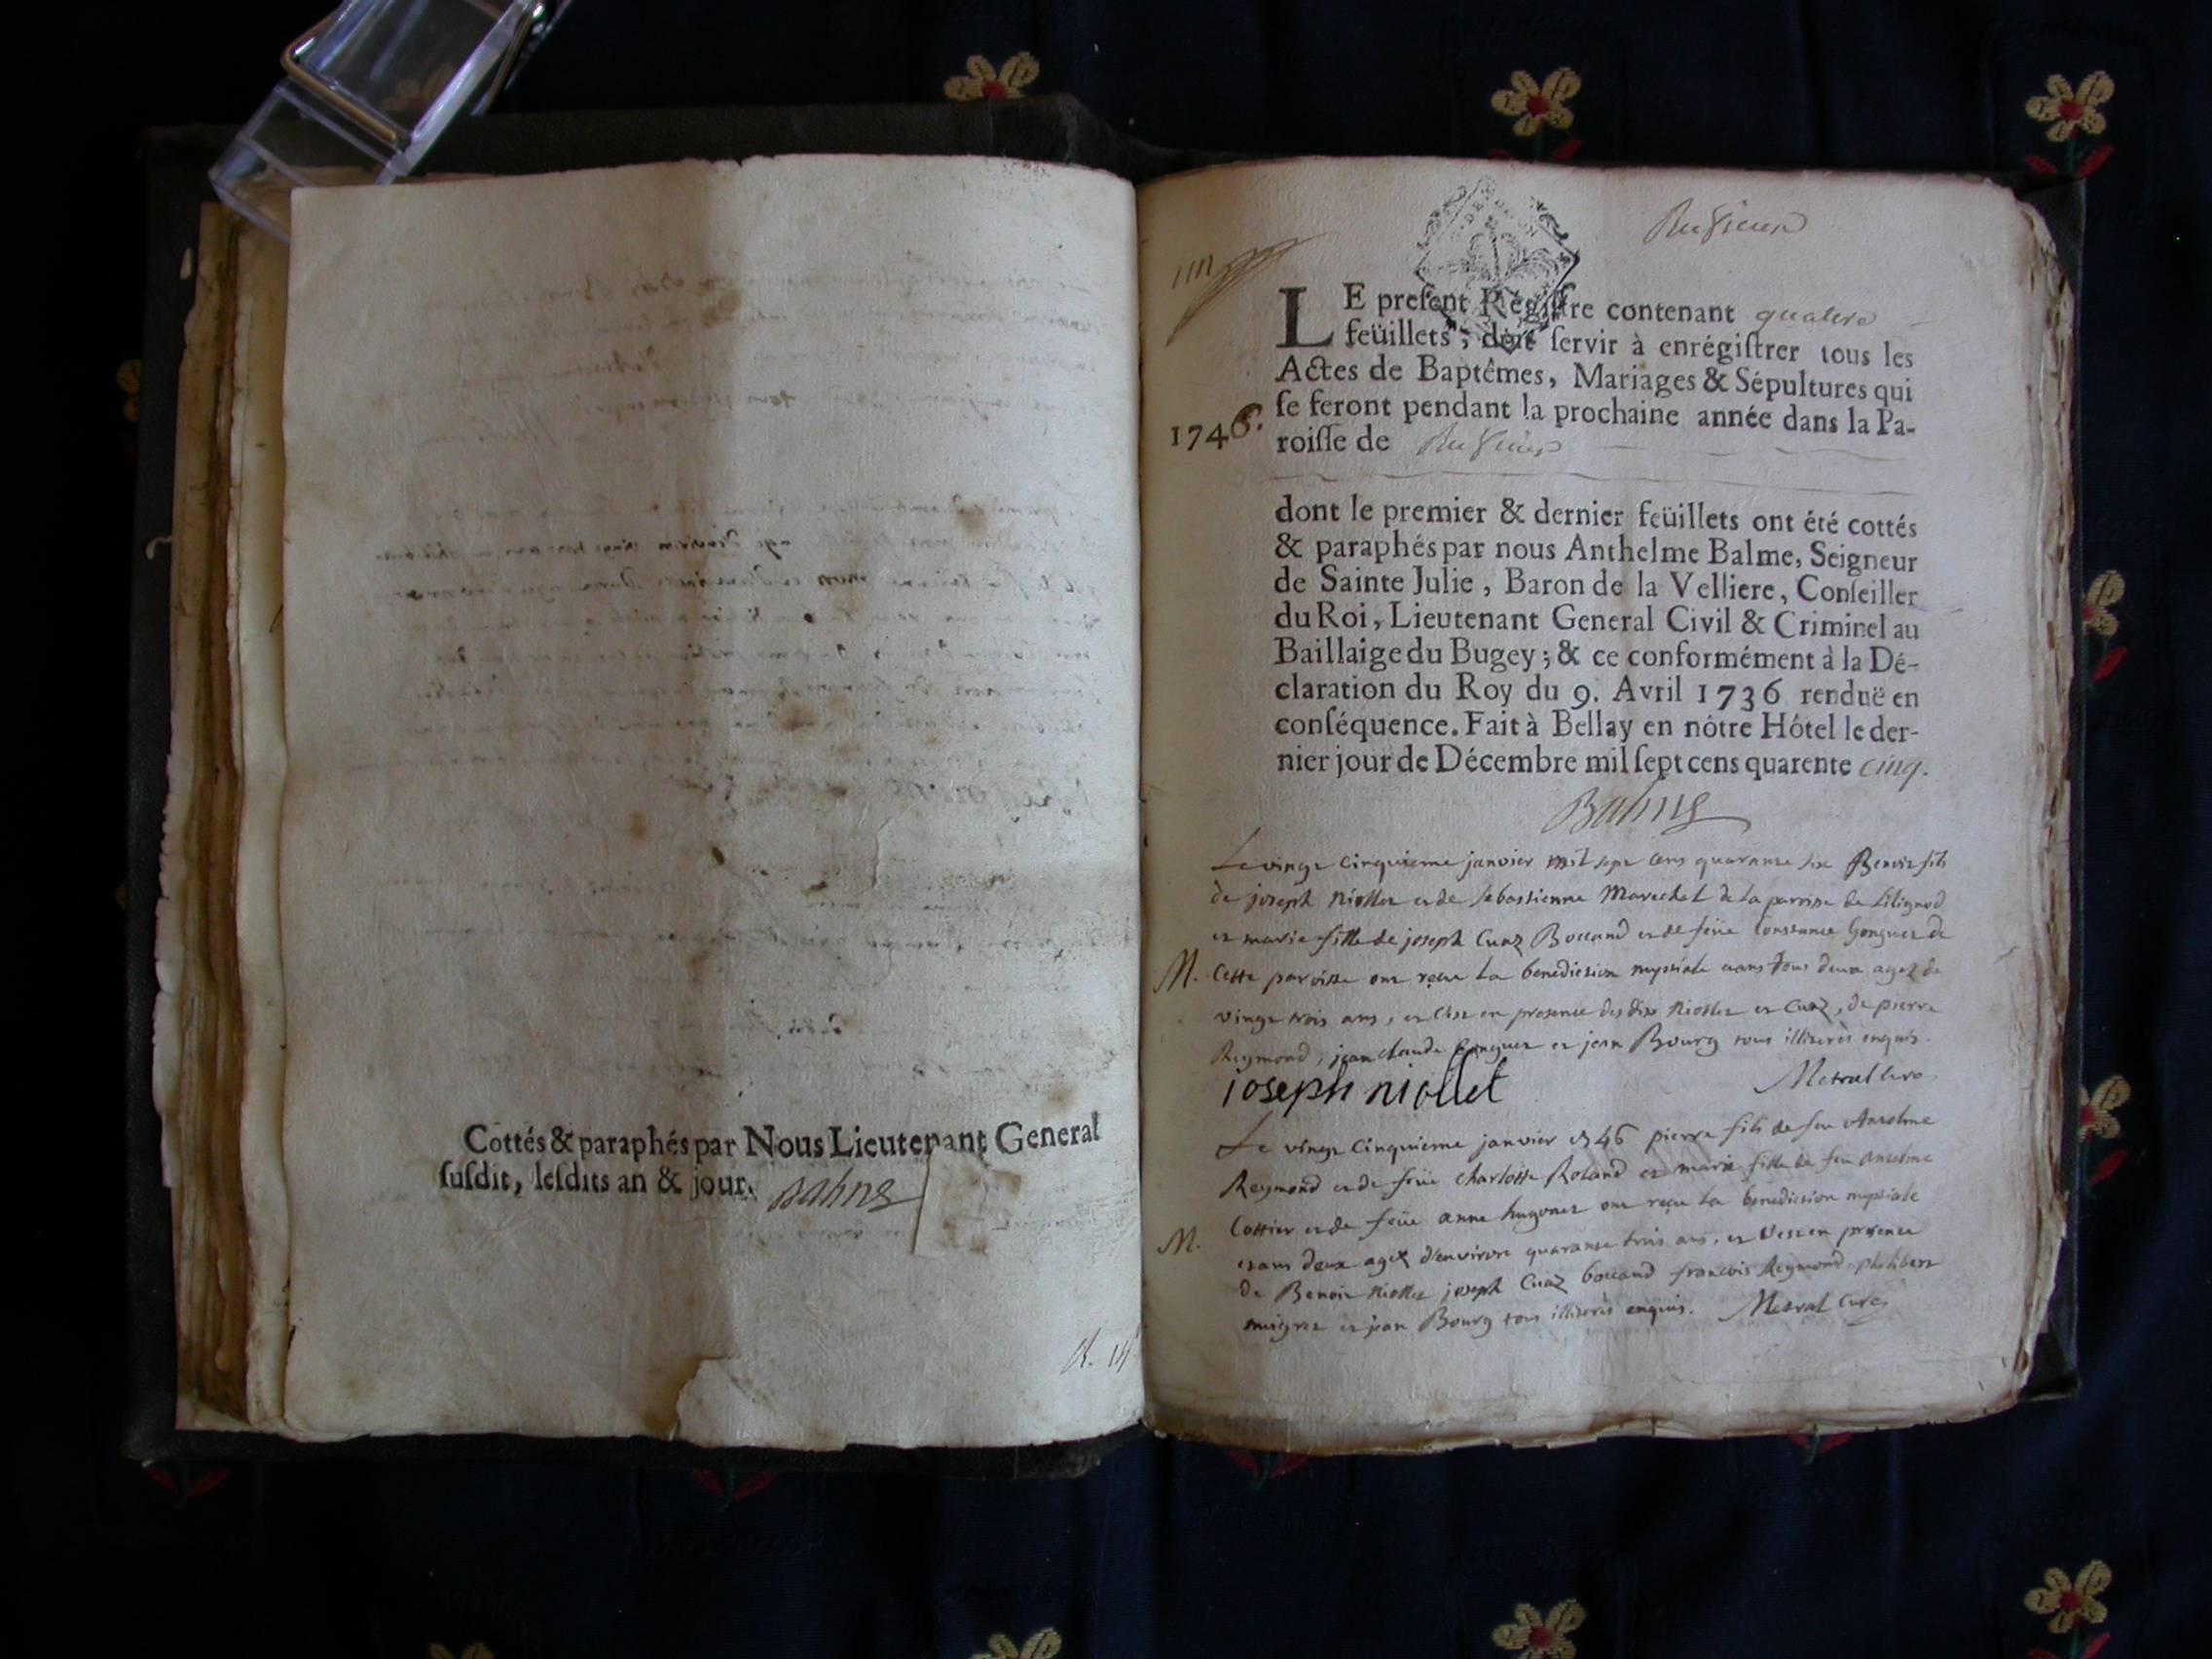 Cottés & paraphés par Nous Lieutenant General
suſdit, leſdits an & jour. Balme
Ruffieux
LE preſent Régiſtre contenant quatre
feüillets, doit ſervir à enrégiſtrer tous les
Actes de Baptêmes, Mariages & Sépultures qui
ſe feront pendant la prochaine année dans la Pa-
1746.
roiſſe de Ruffieux
dont le premier & dernier feüillets ont été cottés
& paraphés par nous Anthelme Balme, Seigneur
de Sainte Julie, Baron de la Velliere, Conſeiller
du Roi, Lieutenant General Civil & Criminel au
Baillaige du Bugey; & ce conformément à la Dé-
claration du Roy du 9. Avril 1736 renduë en
conſéquence. Fait à Bellay en nótre Hôtel le der-
nier jour de Décembre mil ſept cens quarente cinq.
Balme
Le vingt cinquieme janvier mil sept cens quarante six Benoit fils
de joseph Niollet et de sebastienne Marechal de la parroisse de Lilignod
et marie fille de joseph Cuaz Boccand et de feüe Constance Gonguet de
M. Cette paroisse ont reçu la benediction nuptiale etans tous deux agez de
vingt trois ans, et c'est en presence desdits Niollet et Cuaz, de pierre
Reymond, jean claude Gonguet et jean Bourg tous illiterès enquis.
joseph niollet Metral Curé
Le vingt cinquieme janvier 1746 pierre fils de feu Anselme
Reymond et de feüe charlotte Roland et marie fille de feu Anselme
Cottier et de feüe anne hugonet ont reçu la benediction nuptiale
M. etans deux agez d'environ quarante trois ans, et c'est en presence
de Benoit Niollet joseph Cuaz boccand francois Reymond philibert
et jean Bourg tous illiterès enquis. Metral Curé